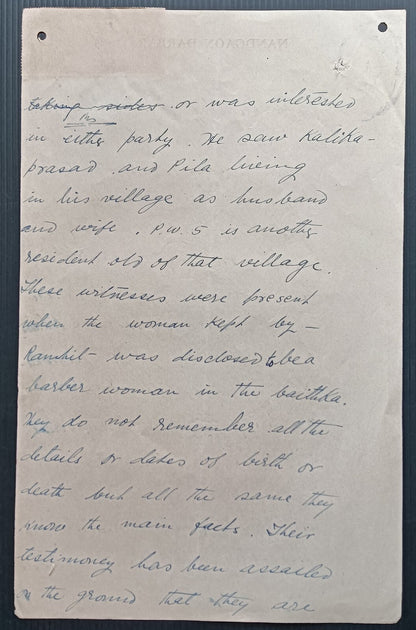 taking sides or was interested
in either party. He saw Kalika-
prasad and Pila living
in his village as husband
and wife. P.W. 5 is another
resident old of that village.
These witnesses were present
when the woman kept by -
Ramhit - was disclosed to be a
barber woman in the baithka.
They do not remember all the
details or dates of birth or
death but all the same they
know the main facts. Their
testimoney has been assailed
on the ground that they are